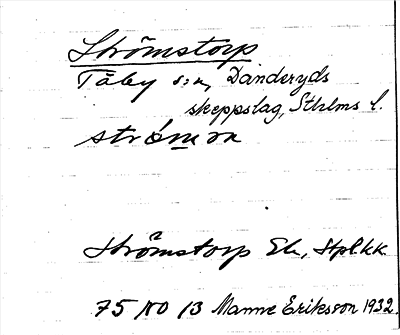 Strömstorp
Täby s:n, Danderyds
skeppslag, Sthlms l.
Strömstorp Ek, Stpl.kk.
75 NO 13 Manne Eriksson 1932.